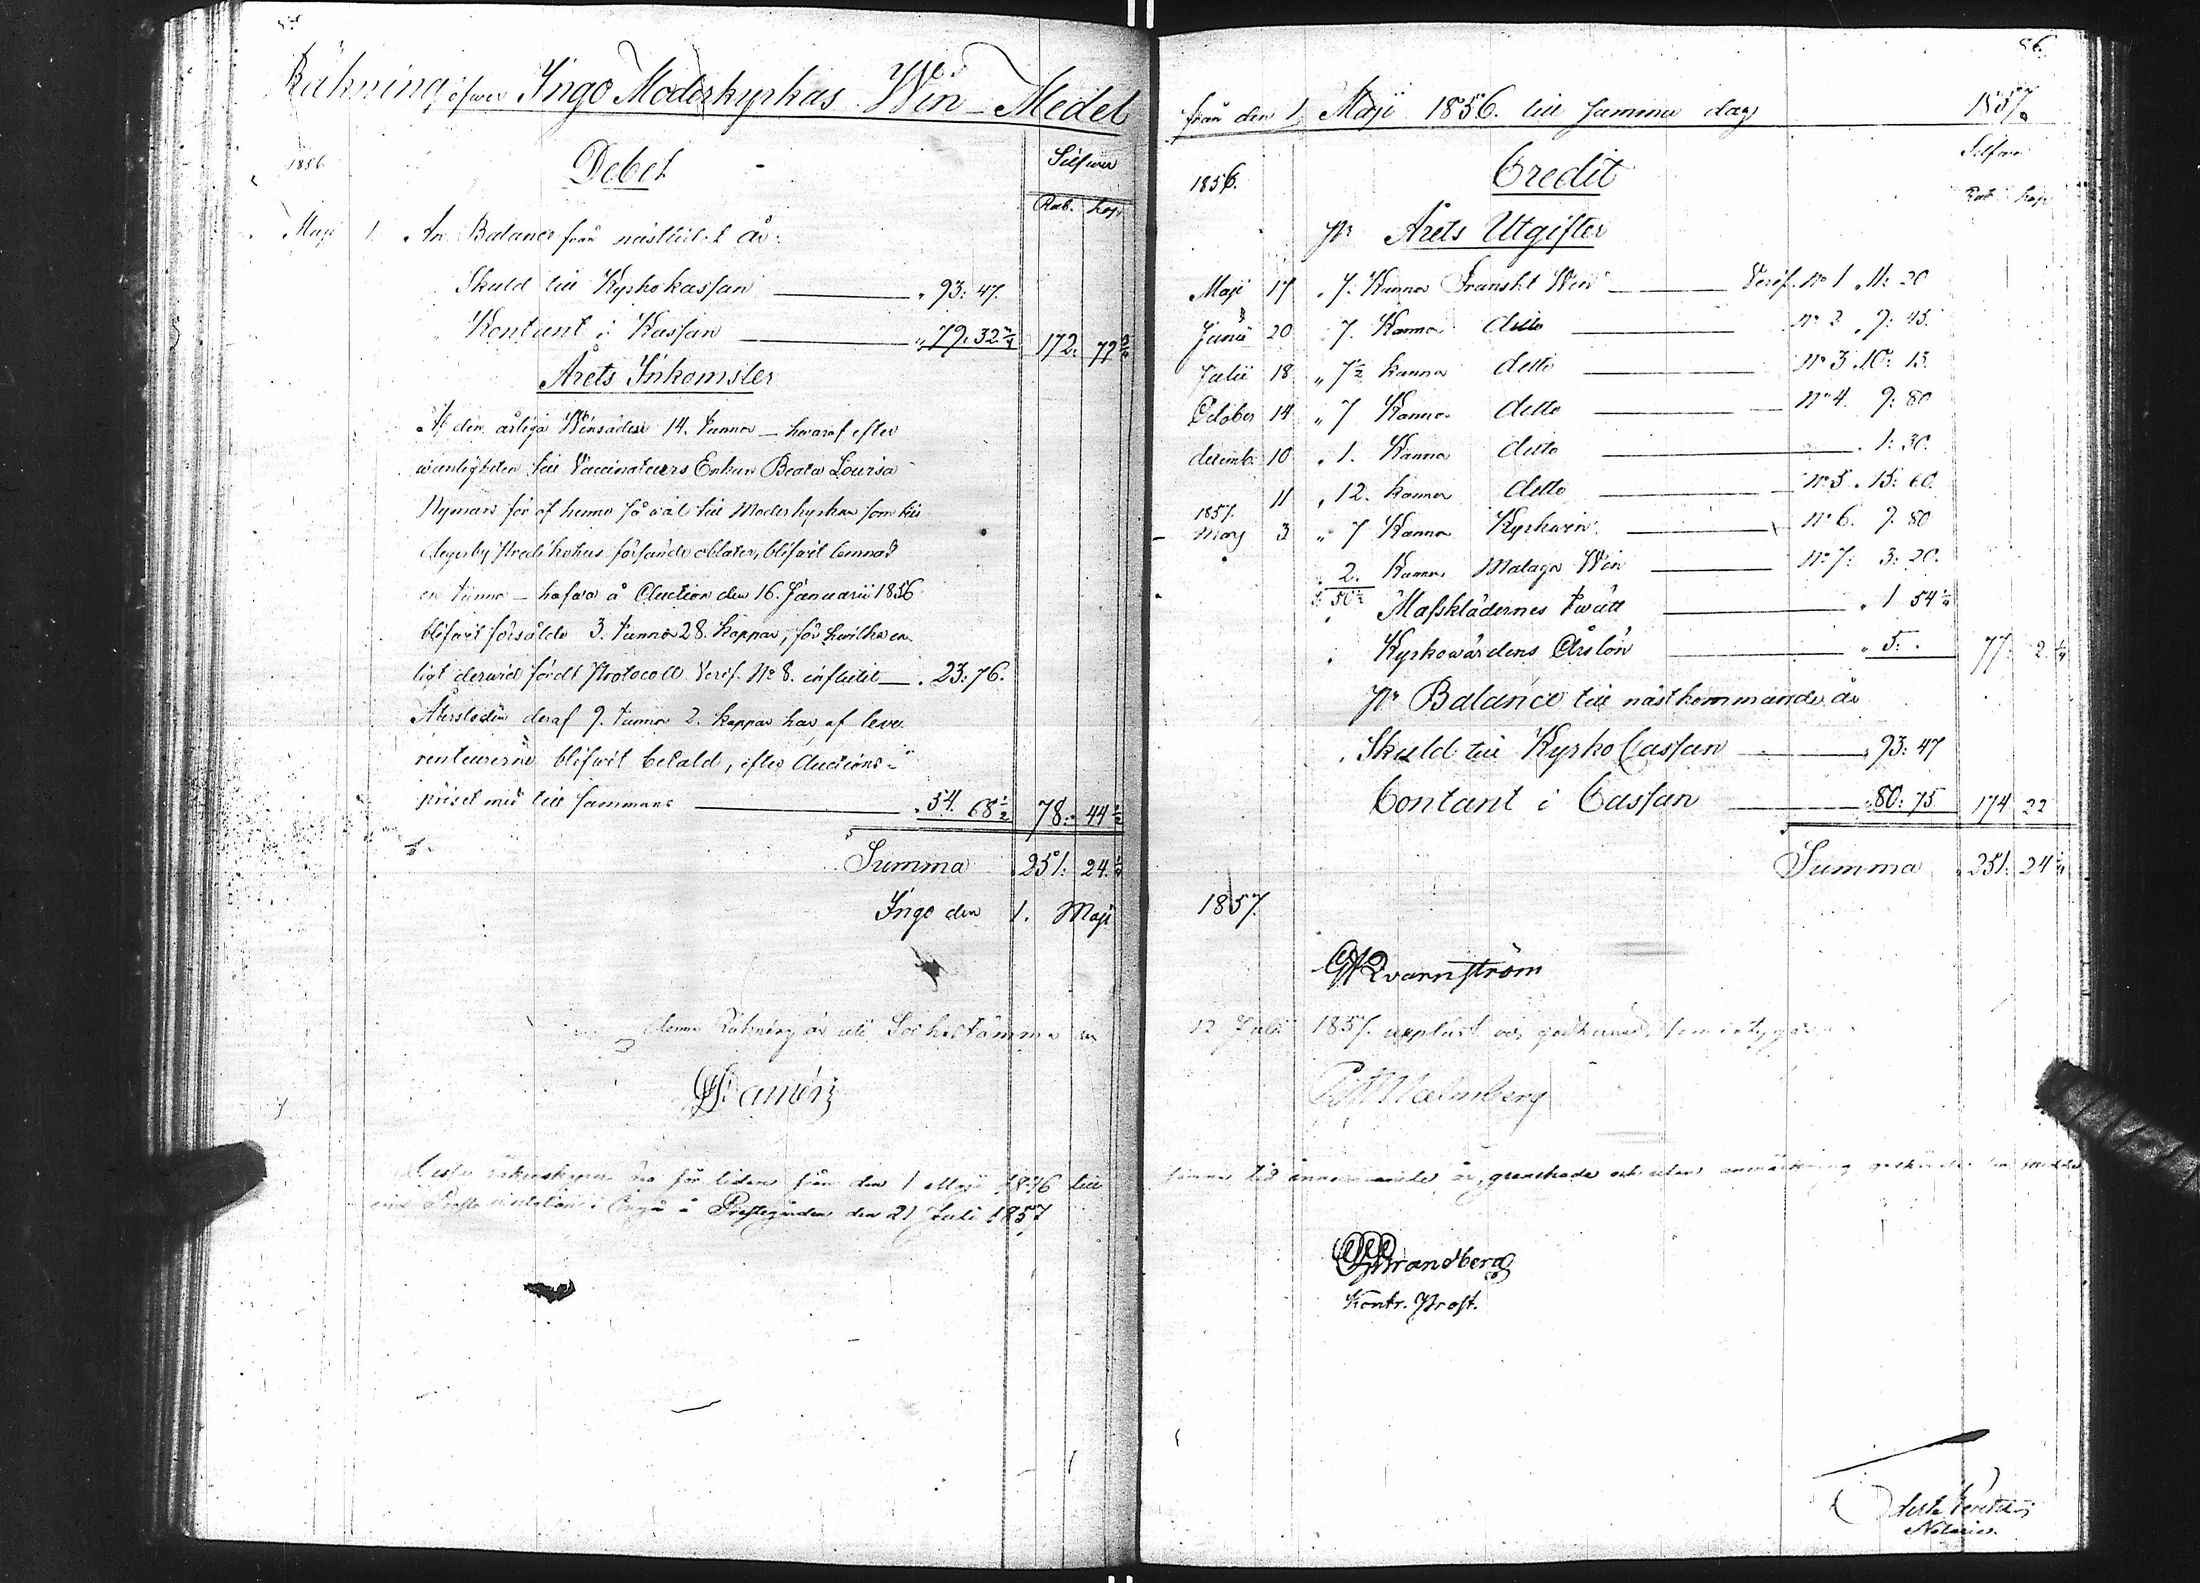 Räkning öfwer Ingo Moderkyrkas Win-Medel
1856
Debet
Silfwer
Rub. kop
Maji 1. An Balance från nästledit år:
Skuld till Kyrkokassan 93: 47.
Kontant i Kassan 79: 32 3/4 172: 79 3/4
Årets Inkomster
Af den årliga Winsäden 14. Tunnor — hvaraf efter
wanligheten till Vaccinateurs Enkan Beata Lovisa
Nyman för af henne så wäl till Moderkyrkan som till
Degerby Predikohus försände oblater, blifwit lemnad
en tunna — hafwa å Auction den 16. Januarii 1856
blifwit försålde 3. tunnor 28. kappar, för hwilka en-
ligt derwid fördt Protocoll Verif. No 8. influtit 23: 76.
Återstoden deraf 9. tunnor 2. kappar har af leve-
renteurerne blifwit betald, efter Auctions-
priset med till sammans 54. 68 1/2 78: 44 1/2
Summa 251: 24 1/4
Ingo den 1. Maji
denna Räkning är uti Sockestämma den
till
Prestegården den 21 Juli 1857
86.
från den 1. Maji 1856. till samma dag 1857.
1856.
Credit
Silfwer
Rub kop
Pr Årets Utgifter
Maji 17 7. Kannor Franskt Win Verif. No 1 11: 20
Junii 20 7. Kannor ditto No 2 9: 45.
Julii 18 " 7 1/2 kannor ditto No 3 10: 13.
October 14 " 7 Kannor ditto No 4. 9: 80
decemb. 10 1. Kanna ditto 1: 30.
11 12. kannor ditto No 5. 15: 60.
1857.
Marg 3 " 7 Kannor Kyrkwin No 6. 9. 80
2. Kannor Malaga Win No 7: 3: 20.
S: 50 1/2 Masskläderness twätt 1 54 1/4
Kyrkowärdens Årslön 5. 77. 2 1/4
Pr Balance till nästkommande år
Skuld till Kyrko Cassan 93: 47
Contant i Cassan 80: 75 174 22
Summa 251: 24 1/4
1857.
Qvarnström
12 Juli 1857. uppläst och godkänd, som intygar
Malmberg
samma tid granskade och utan anmärkning
Strandberg
Kontr. Prost.
Notarie.